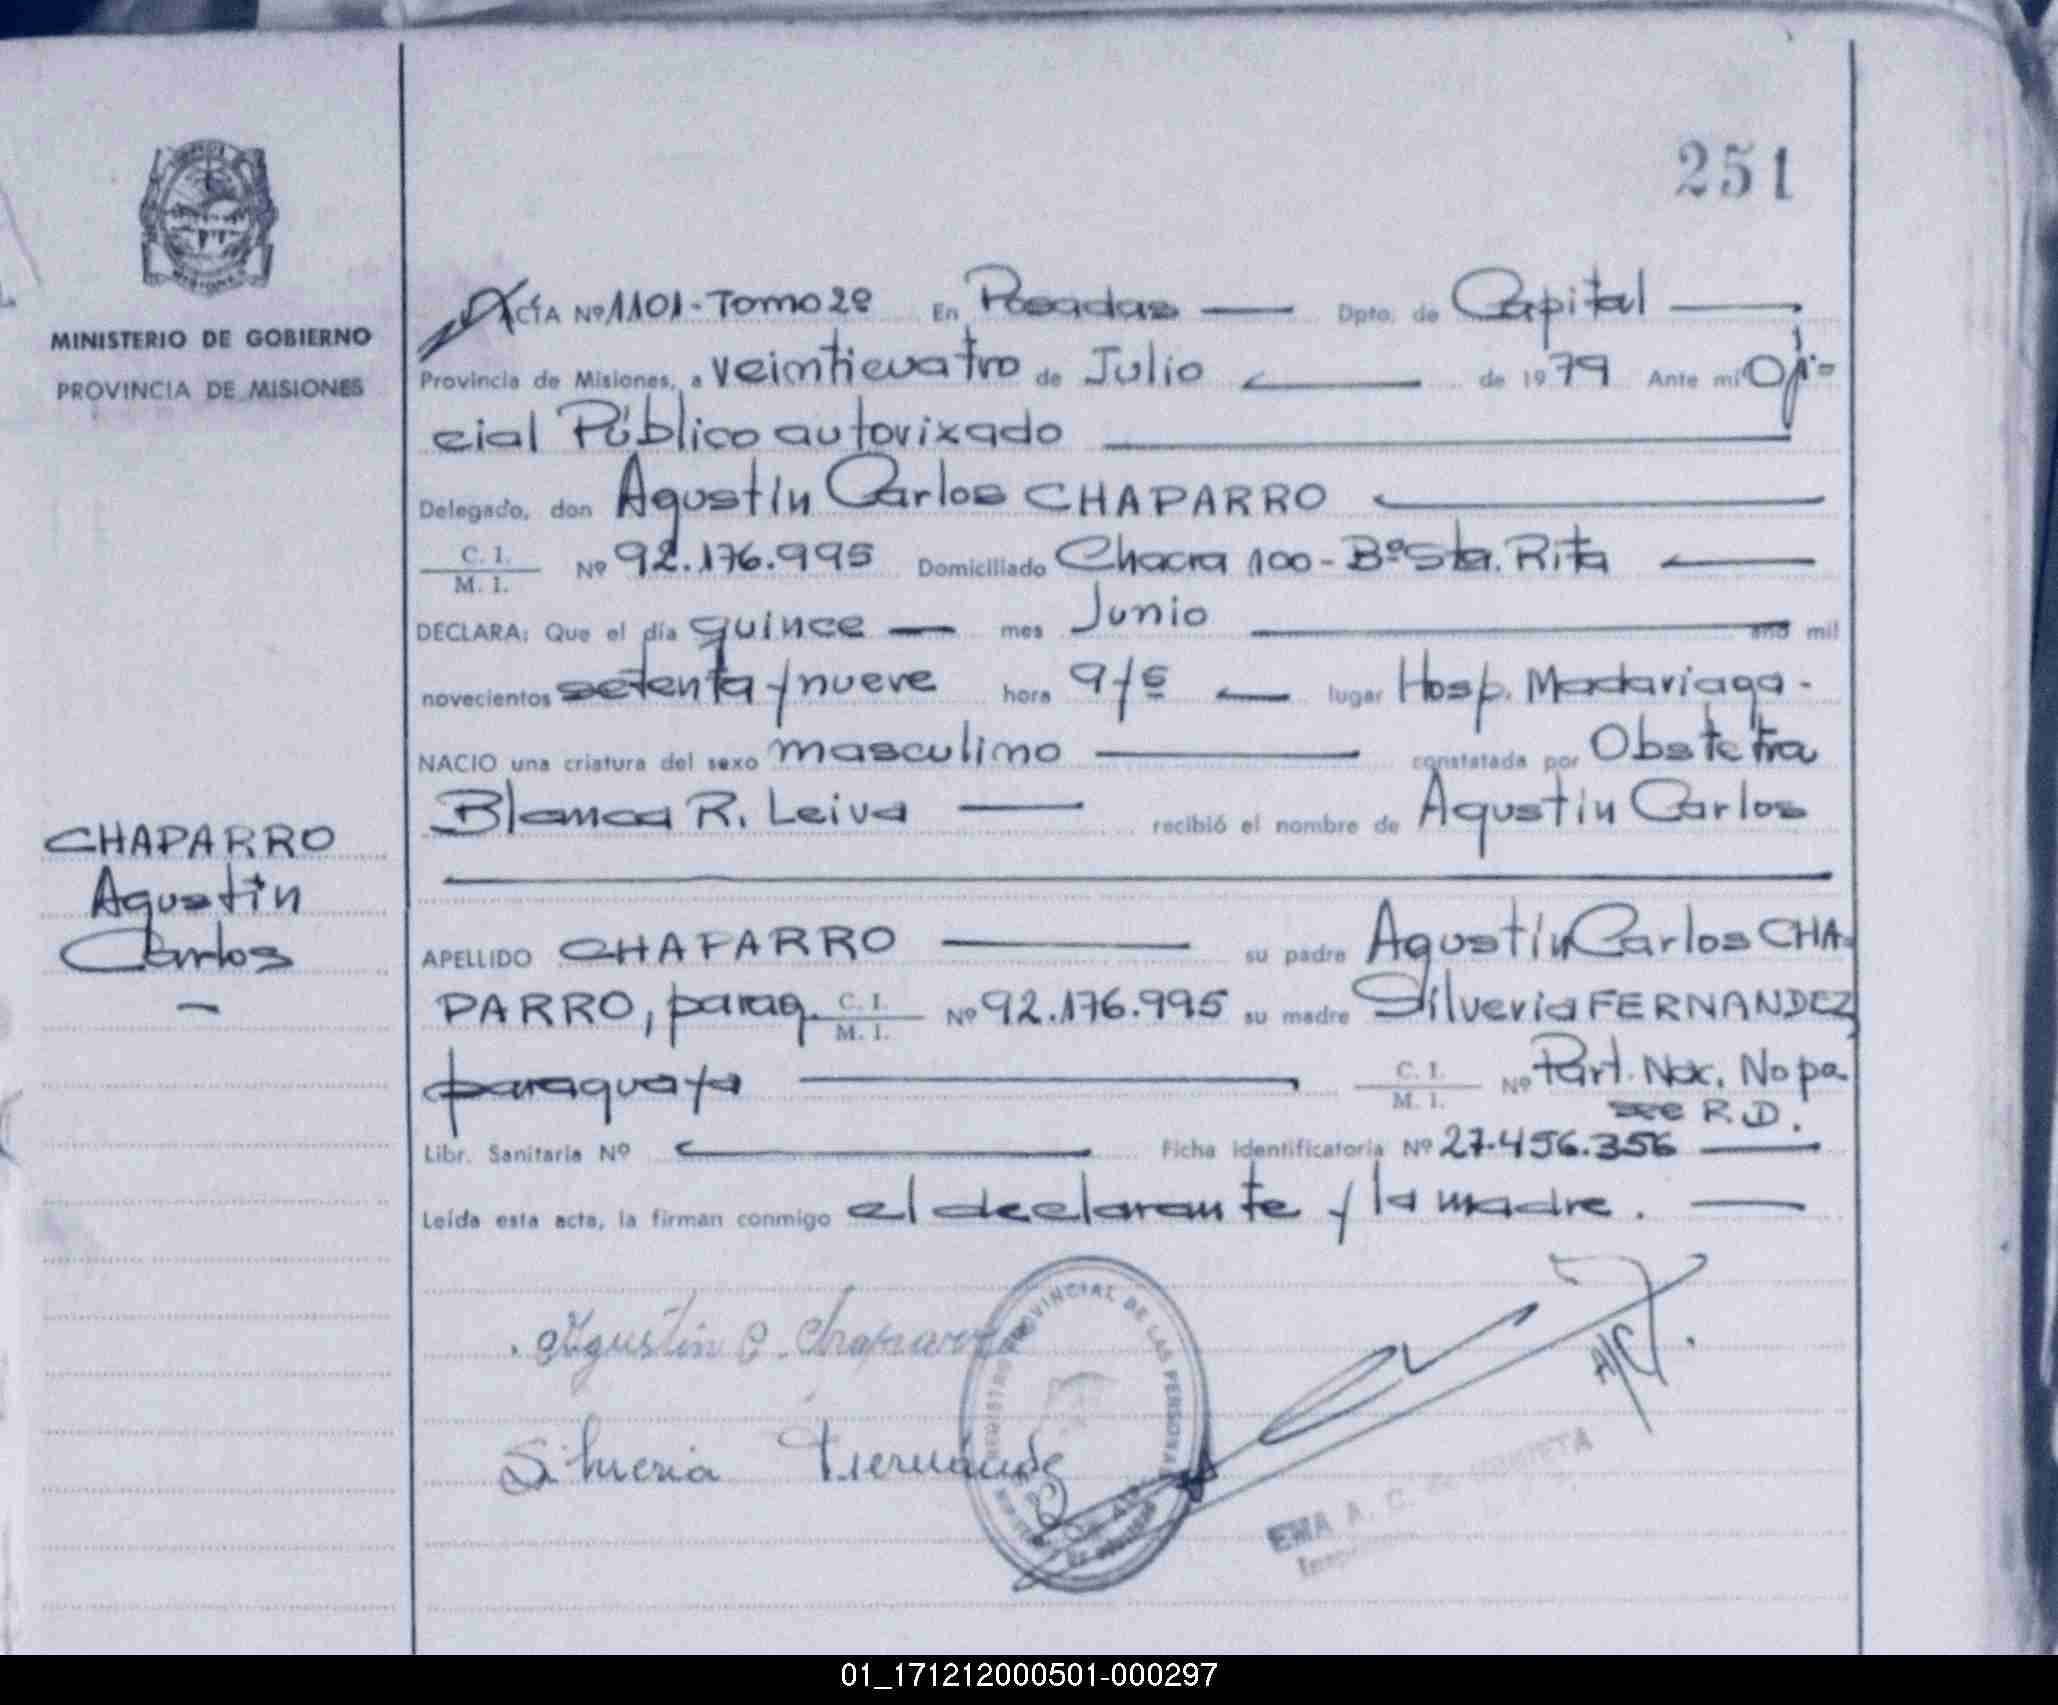 251
MINISTERIO DE GOBIERNO
PROVINCIA DE MISIONES
ACTA Nº 1101 - Tomo 2º En Posadas Dpto. de Capital
Provincia de Misiones, a veinticuatro de Julio de 1979 Ante mi Ofi-
cial Público autorizado
Delegado, don Agustín Carlos CHAPARRO
C. I.
M. I.
Nº 92.176.995 Domiciliado Chacra 100 - Bº Sta. Rita
DECLARA: Que el día quince mes Junio año mil
novecientos setenta y nueve hora 9 y 5 lugar Hosp. Madariaga -
NACIO una criatura del sexo masculino constatada por Obstetra
Blanca R. Leiva recibió el nombre de Agustín Carlos
CHAPARRO
Agustín
Carlos
APELLIDO CHAPARRO su padre Agustín Carlos CHA-
PARRO, parag. C. I. M. I. Nº 92.176.995 su madre Silveria FERNANDEZ,
paraguaya C. I. M. I. Nº Part. Nac. No po
see R.D.
Libr. Sanitaria Nº Ficha identificatoria Nº 27.456.356
Leída esta acta, la firman conmigo el declarante y la madre.
Agustin C. Chaparro
Silveria Fernandez
REGISTRO PROVINCIAL DE LAS PERSONAS
A/C
EMA A. C. de
01_171212000501-000297